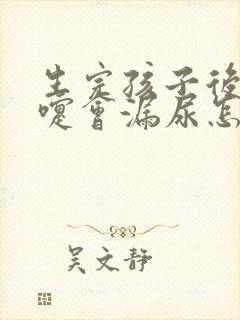 生完孩子後
嚏會漏尿怎
吴文静